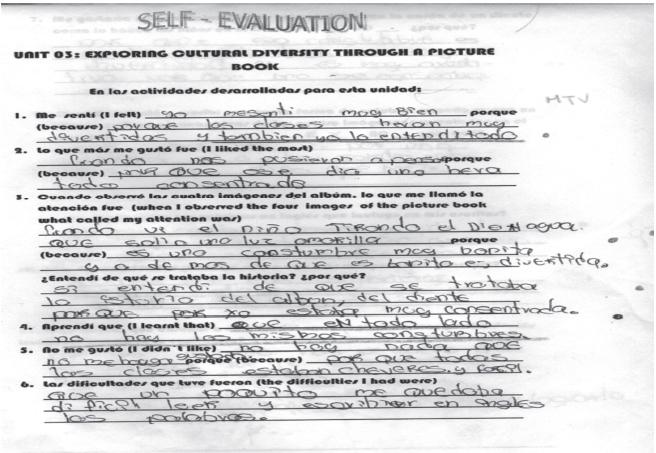 SELF - EVALUATION
UNIT 03: EXPLORING CULTURAL DIVERSITY THROUGH A PICTURE
BOOK
En las actividades desarrolladas para esta unidad:
MTV
1. Me sentí (I felt) yo mesenti muy Bien porque
(because) porque las clases heran muy
divertidas y tambien yo lo entendi todo
2. Lo que más me gustó fue (I liked the most)
cuando nos pusieron a pensar porque
(because) por que ese dia uno hera
todo consentrado
3. Cuando observé las cuatro imágenes del albúm, lo que me llamó la
atención fue (when I observed the four images of the picture book
what called my attention was)
cuando vi el niño Tirando el Diente
que salio una luz amarilla porque
(because) es una construmbre muy bonita
y a de mas de que es bonito es divertida.
¿Entendí de qué se trataba la historia? ¿por qué?
si entendi de que se trataba
la estoria del albun, del diente
por que yo estaba muy consentrada.
4. Aprendí que (I learnt that) que en todo lado
no hay las mismas
5. No me gustó (I didn´t like) no hay nada que
no me gusta porque (because) por que todas
las clases estaban cheveres. y
6. Las dificultades que tuve fueron (the difficulties I had were)
que un poquito me quedaba
dificil leer y escribir en Ingles
las palabras.